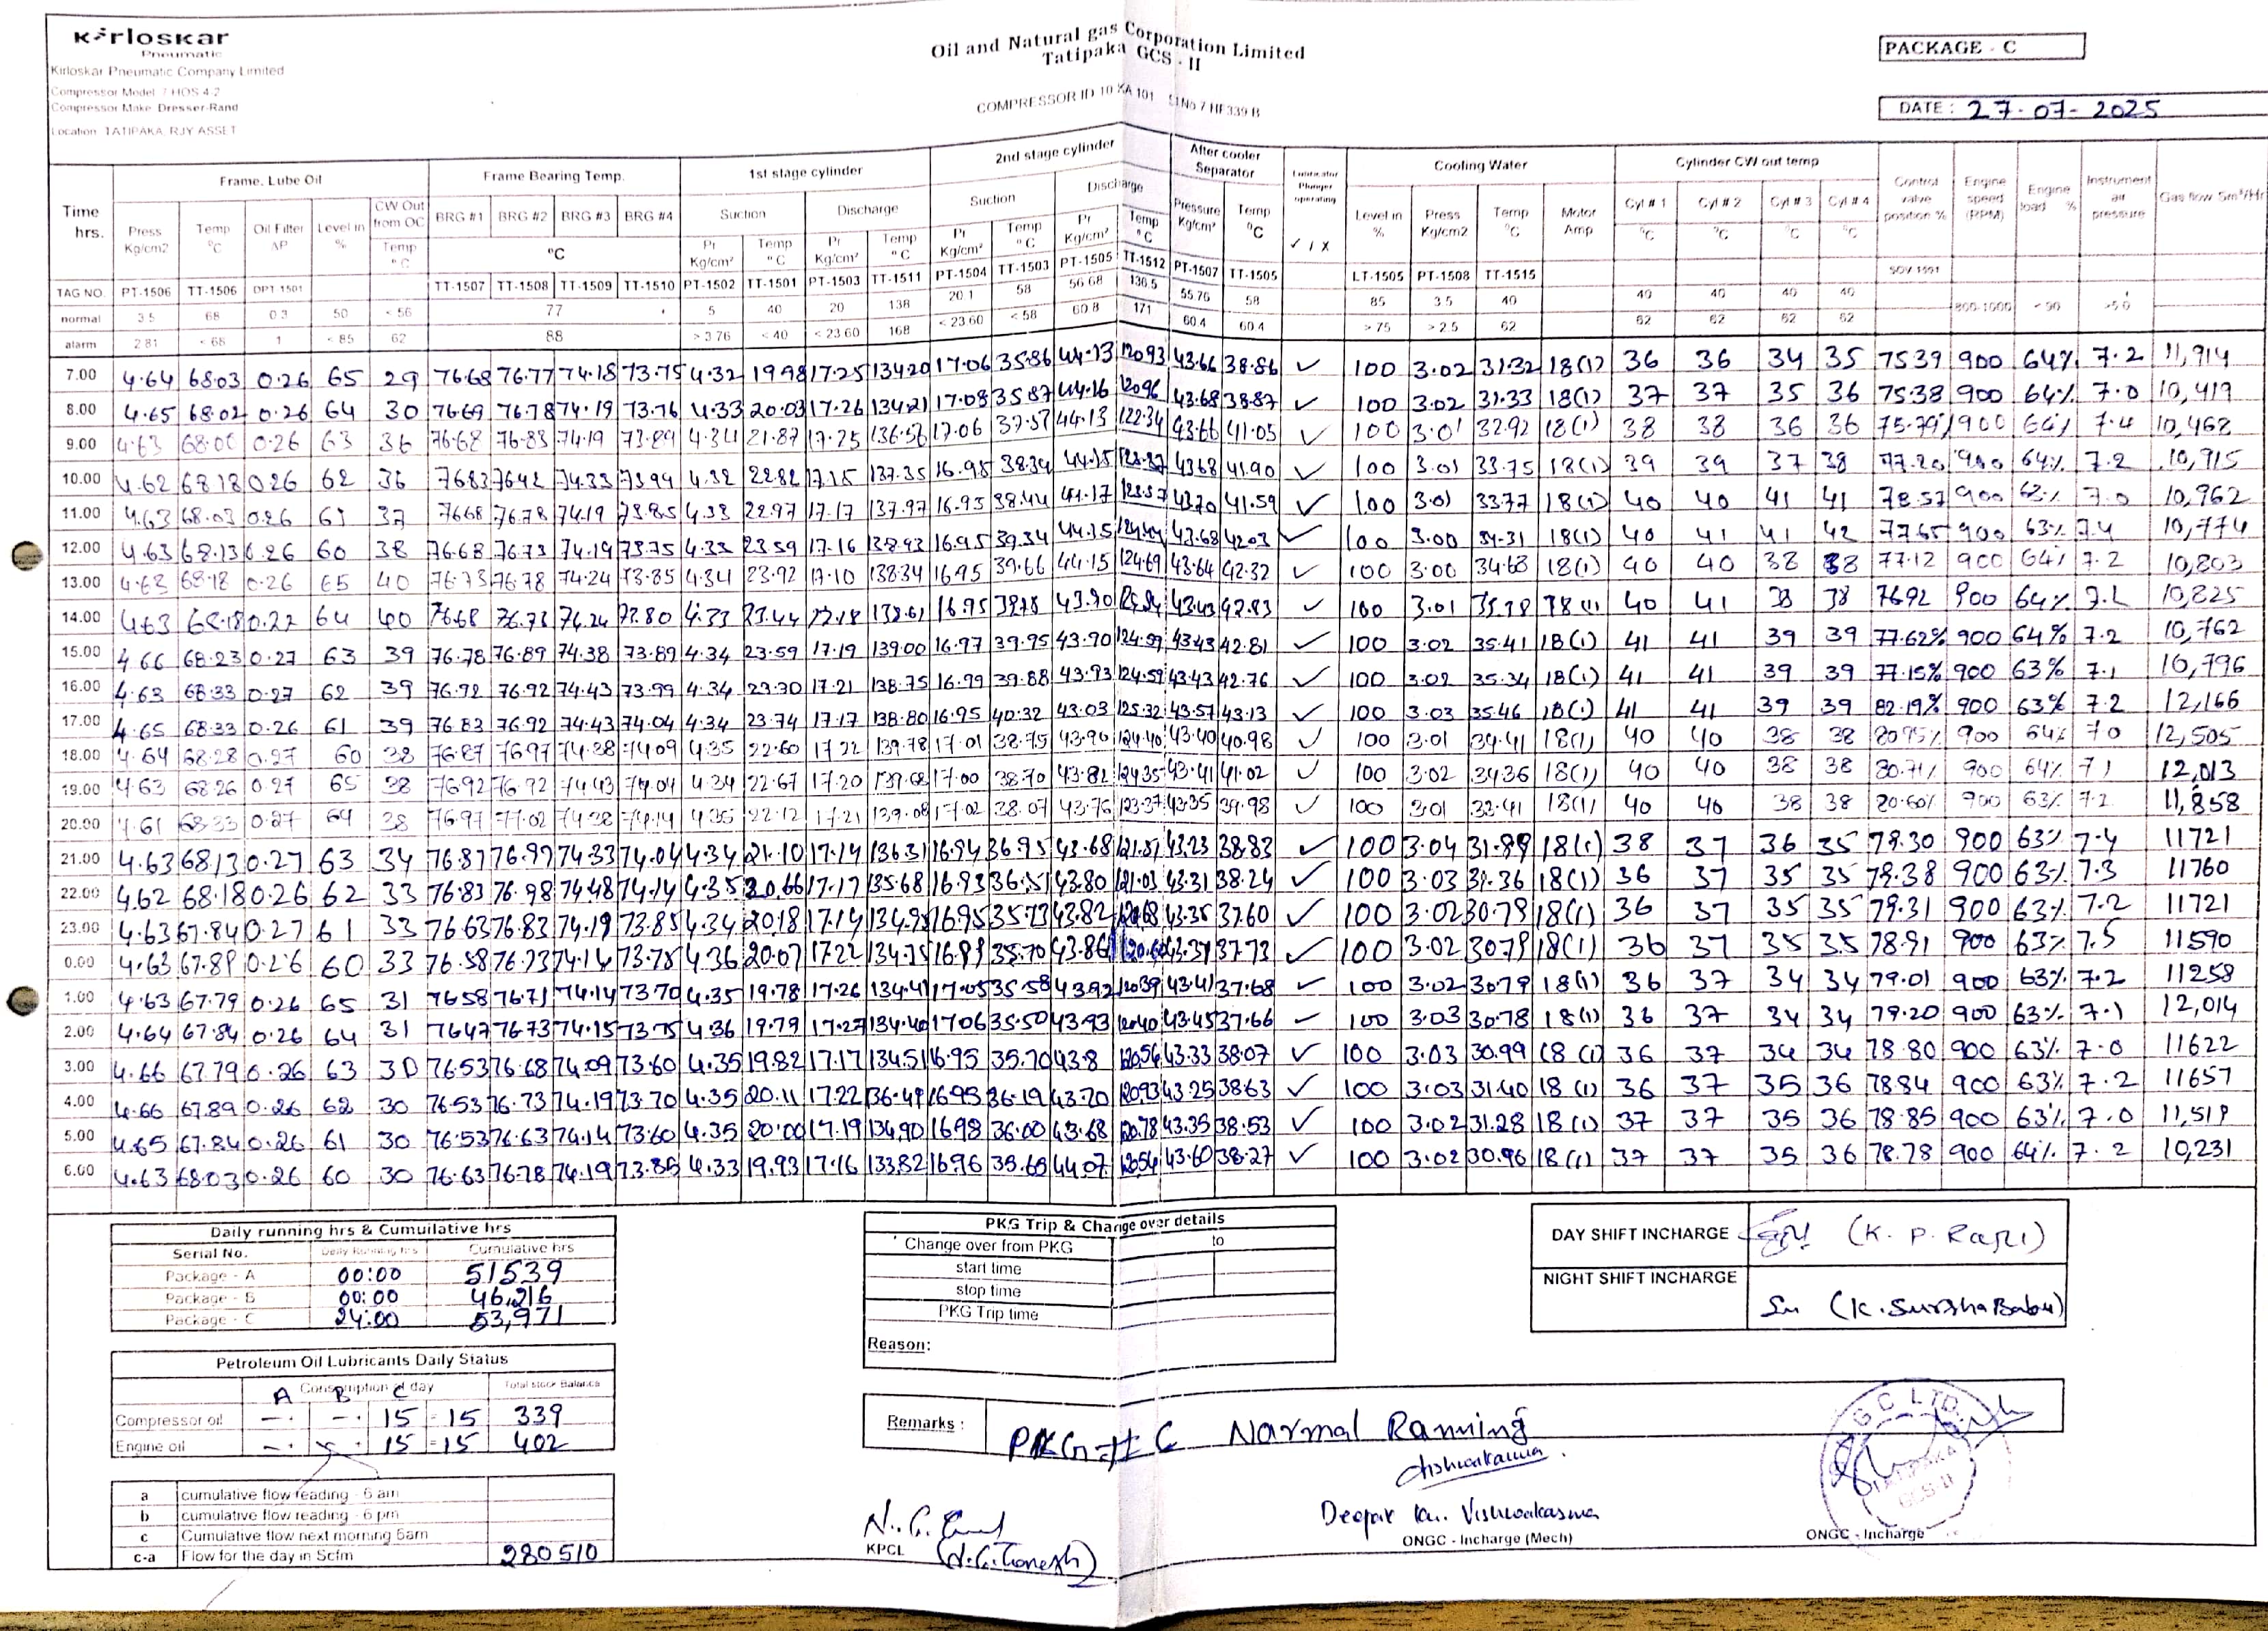 Kirloskar
Pneumatic
Kirloskar Pneumatic Company Limited
Compressor Model 7 HOS 4 2
Compressor Make Dresser-Rand
Location TATIPAKA, RJY ASSET
Oil and Natural gas Corporation Limited
Tatipaka GCS - II
COMPRESSOR ID 10 KA 101 Sl No 7 HF 339 B
PACKAGE - C
DATE : 27-07-2025
Time hrs. Frame. Lube Oil Frame Bearing Temp. 1st stage cylinder 2nd stage cylinder After cooler Separator Lubricator Plunger operating Cooling Water Cylinder CW out temp Control valve position % Engine speed (RPM) Engine load % Instrument air pressure Gas flow Sm³/Hr
Press Kg/cm2 Temp °C Oil Filter ΔP Level in % CW Out from OC Temp °C BRG #1 BRG #2 BRG #3 BRG #4 °C Suction Discharge Suction Discharge Pressure Kg/cm² Temp °C ✓ / X Level in % Press Kg/cm2 Temp °C Motor Amp Cyl # 1 Cyl # 2 Cyl # 3 Cyl # 4
Pr Kg/cm² Temp °C Pr Kg/cm² Temp °C Pr Kg/cm² Temp °C Pr Kg/cm² Temp °C °C °C °C °C
TAG NO. PT-1506 TT-1506 DPT 1501 TT-1507 TT-1508 TT-1509 TT-1510 PT-1502 TT-1501 PT-1503 TT-1511 PT-1504 TT-1503 PT-1505 TT-1512 PT-1507 TT-1505 LT-1505 PT-1508 TT-1515 SOV 1551
normal 3.5 68 0.3 50 < 56 77 5 40 20 138 20 1 58 56 68 136.5 55 76 58 85 3.5 40 40 40 40 40 800-1000 < 90 >5.0
alarm 2 81 < 68 1 < 85 62 88 > 3 76 < 40 < 23 60 168 < 23 60 < 58 60 8 171 60.4 60.4 > 75 > 2.5 62 62 62 62 62
7.00 4.64 68.03 0.26 65 29 76.68 76.77 74.18 73.75 4.32 19.98 17.25 134.20 17.06 35.86 44.13 120.93 43.66 38.86 ✓ 100 3.02 31.32 18(1) 36 36 34 35 75.39 900 64% 7.2 11,914
8.00 4.65 68.02 0.26 64 30 76.69 76.78 74.19 73.76 4.33 20.03 17.26 134.21 17.08 35.87 44.16 120.96 43.68 38.87 ✓ 100 3.02 31.33 18(1) 37 37 35 36 75.38 900 64% 7.0 10,419
9.00 4.63 68.00 0.26 63 36 76.68 76.83 74.19 73.89 4.34 21.87 17.25 136.56 17.06 37.57 44.13 122.34 43.66 41.05 ✓ 100 3.01 32.92 18(1) 38 38 36 36 75.79% 900 64% 7.4 10,468
10.00 4.62 68.18 0.26 62 36 76.83 76.42 74.33 73.94 4.32 22.82 17.15 137.35 16.95 38.34 44.15 43.68 41.90 ✓ 100 3.01 33.75 18(1) 39 39 37 38 77.20 900 64% 7.2 10,915
11.00 4.63 68.03 0.26 61 37 76.68 76.78 74.19 73.85 4.33 22.97 17.17 137.97 16.95 38.44 44.17 123.57 43.70 41.59 ✓ 100 3.01 33.77 18(1) 40 40 41 41 78.57 900 62% 7.0 10,962
12.00 4.63 68.13 0.26 60 38 76.68 76.73 74.19 73.75 4.33 23.59 17.16 138.93 16.95 39.34 44.15 124.44 43.68 42.03 ✓ 100 3.00 34.31 18(1) 40 41 41 42 77.65 900 63% 7.4 10,774
13.00 4.63 68.18 0.26 65 40 76.73 76.78 74.24 73.85 4.34 23.92 17.10 138.34 16.95 39.66 44.15 124.69 43.64 42.32 ✓ 100 3.00 34.68 18(1) 40 40 38 38 77.12 900 64% 7.2 10,803
14.00 4.63 68.18 0.27 64 40 76.68 76.73 74.24 73.80 4.33 23.44 17.18 138.61 16.95 39.78 43.90 43.43 42.83 ✓ 100 3.01 35.38 18(1) 40 41 38 38 76.92 900 64% 7.2 10,825
15.00 4.66 68.23 0.27 63 39 76.78 76.89 74.38 73.89 4.34 23.59 17.19 139.00 16.97 39.95 43.90 124.59 43.43 42.81 ✓ 100 3.02 35.41 18(1) 41 41 39 39 77.62% 900 64% 7.2 10,762
16.00 4.63 68.33 0.27 62 39 76.92 76.92 74.43 73.99 4.34 23.30 17.21 138.75 16.99 39.88 43.93 124.59 43.43 42.76 ✓ 100 3.02 35.34 18(1) 41 41 39 39 77.15% 900 63% 7.1 10,796
17.00 4.65 68.33 0.26 61 39 76.83 76.92 74.43 74.04 4.34 23.74 17.17 138.80 16.95 40.32 43.03 125.32 43.57 43.13 ✓ 100 3.03 35.46 18(1) 41 41 39 39 82.19% 900 63% 7.2 12,166
18.00 4.64 68.28 0.27 60 38 76.87 76.97 74.38 74.09 4.35 22.60 17.22 139.78 17.01 38.75 43.90 124.40 43.40 40.98 ✓ 100 3.01 34.41 18(1) 40 40 38 38 80.95% 900 64% 7.0 12,505
19.00 4.63 68.26 0.27 65 38 76.92 76.92 74.43 74.04 4.34 22.67 17.20 139.08 17.00 38.70 43.82 124.35 43.41 41.02 ✓ 100 3.02 34.36 18(1) 40 40 38 38 80.71% 900 64% 7.1 12,013
20.00 4.61 68.33 0.27 64 38 76.97 77.02 74.38 74.14 4.35 22.12 17.21 139.08 17.02 38.07 43.76 123.37 43.35 39.98 ✓ 100 3.01 33.41 18(1) 40 40 38 38 80.60% 900 63% 7.2 11,858
21.00 4.63 68.13 0.27 63 34 76.87 76.97 74.33 74.04 4.34 21.10 17.14 136.31 16.94 36.95 43.68 121.87 43.23 38.83 ✓ 100 3.04 31.89 18(1) 38 37 36 35 79.30 900 63% 7.4 11721
22.00 4.62 68.18 0.26 62 33 76.83 76.98 74.48 74.14 4.35 20.66 17.17 135.68 16.93 36.51 43.80 121.03 43.31 38.24 ✓ 100 3.03 31.36 18(1) 36 37 35 35 79.38 900 63% 7.3 11760
23.00 4.63 67.84 0.27 61 33 76.63 76.83 74.19 73.85 4.34 20.18 17.14 134.95 16.95 35.73 43.82 120.68 43.35 37.60 ✓ 100 3.02 30.79 18(1) 36 37 35 35 79.31 900 63% 7.2 11721
0.00 4.63 67.89 0.26 60 33 76.58 76.73 74.14 73.75 4.36 20.07 17.22 134.75 16.99 35.70 43.86 120.60 43.39 37.73 ✓ 100 3.02 30.79 18(1) 36 37 35 35 78.91 900 63% 7.5 11590
1.00 4.63 67.79 0.26 65 31 76.58 76.71 74.14 73.70 4.35 19.78 17.26 134.41 17.05 35.58 43.92 120.39 43.41 37.68 ✓ 100 3.02 30.79 18(1) 36 37 34 34 79.01 900 63% 7.2 11258
2.00 4.64 67.84 0.26 64 31 76.47 76.73 74.15 73.75 4.36 19.79 17.27 134.40 17.06 35.50 43.93 120.40 43.45 37.66 ✓ 100 3.03 30.78 18(1) 36 37 34 34 79.20 900 63% 7.1 12,014
3.00 4.66 67.79 0.26 63 30 76.53 76.68 74.09 73.60 4.35 19.82 17.17 134.51 16.95 35.70 43.8 120.56 43.33 38.07 ✓ 100 3.03 30.99 18(1) 36 37 34 34 78.80 900 63% 7.0 11622
4.00 4.66 67.89 0.26 62 30 76.53 76.73 74.19 73.70 4.35 20.11 17.22 136.49 16.95 36.19 43.70 120.93 43.25 38.63 ✓ 100 3.03 31.40 18(1) 36 37 35 36 78.84 900 63% 7.2 11657
5.00 4.65 67.84 0.26 61 30 76.53 76.63 74.14 73.60 4.35 20.00 17.19 134.90 16.98 36.00 43.68 120.78 43.35 38.53 ✓ 100 3.02 31.28 18(1) 37 37 35 36 78.85 900 63% 7.0 11,519
6.00 4.63 68.03 0.26 60 30 76.63 76.78 74.19 73.85 4.33 19.93 17.16 133.82 16.96 35.65 44.07 120.54 43.60 38.27 ✓ 100 3.02 30.96 18(1) 37 37 35 36 78.78 900 64% 7.2 10,231
Daily running hrs & Cumuilative hrs
Serial No. Daily Running hrs Cumulative hrs
Package - A 00:00 51539
Package - B 00:00 46,216
Package - C 24:00 53,971
Petroleum Oil Lubricants Daily Status
Consumption of day Total stock Balance
A B C
Compressor oil - - 15 = 15 339
Engine oil - - 15 = 15 402
a cumulative flow reading - 6 am
b cumulative flow reading - 6 pm
c Cumulative flow next morning 6am
c-a Flow for the day in Scfm 280510
PKG Trip & Change over details
Change over from PKG to
start time
stop time
PKG Trip time
Reason:
DAY SHIFT INCHARGE (K. P. Raju)
NIGHT SHIFT INCHARGE (K. Suresha Babu)
Remarks : PKG-# C Normal Running
Vishwakarma
Deepak Kr. Vishwakarma
ONGC - Incharge (Mech)
KPCL (N.G. Ganesh)
ONGC LTD.
TATIPAKA
GCS-II
ONGC - Incharge